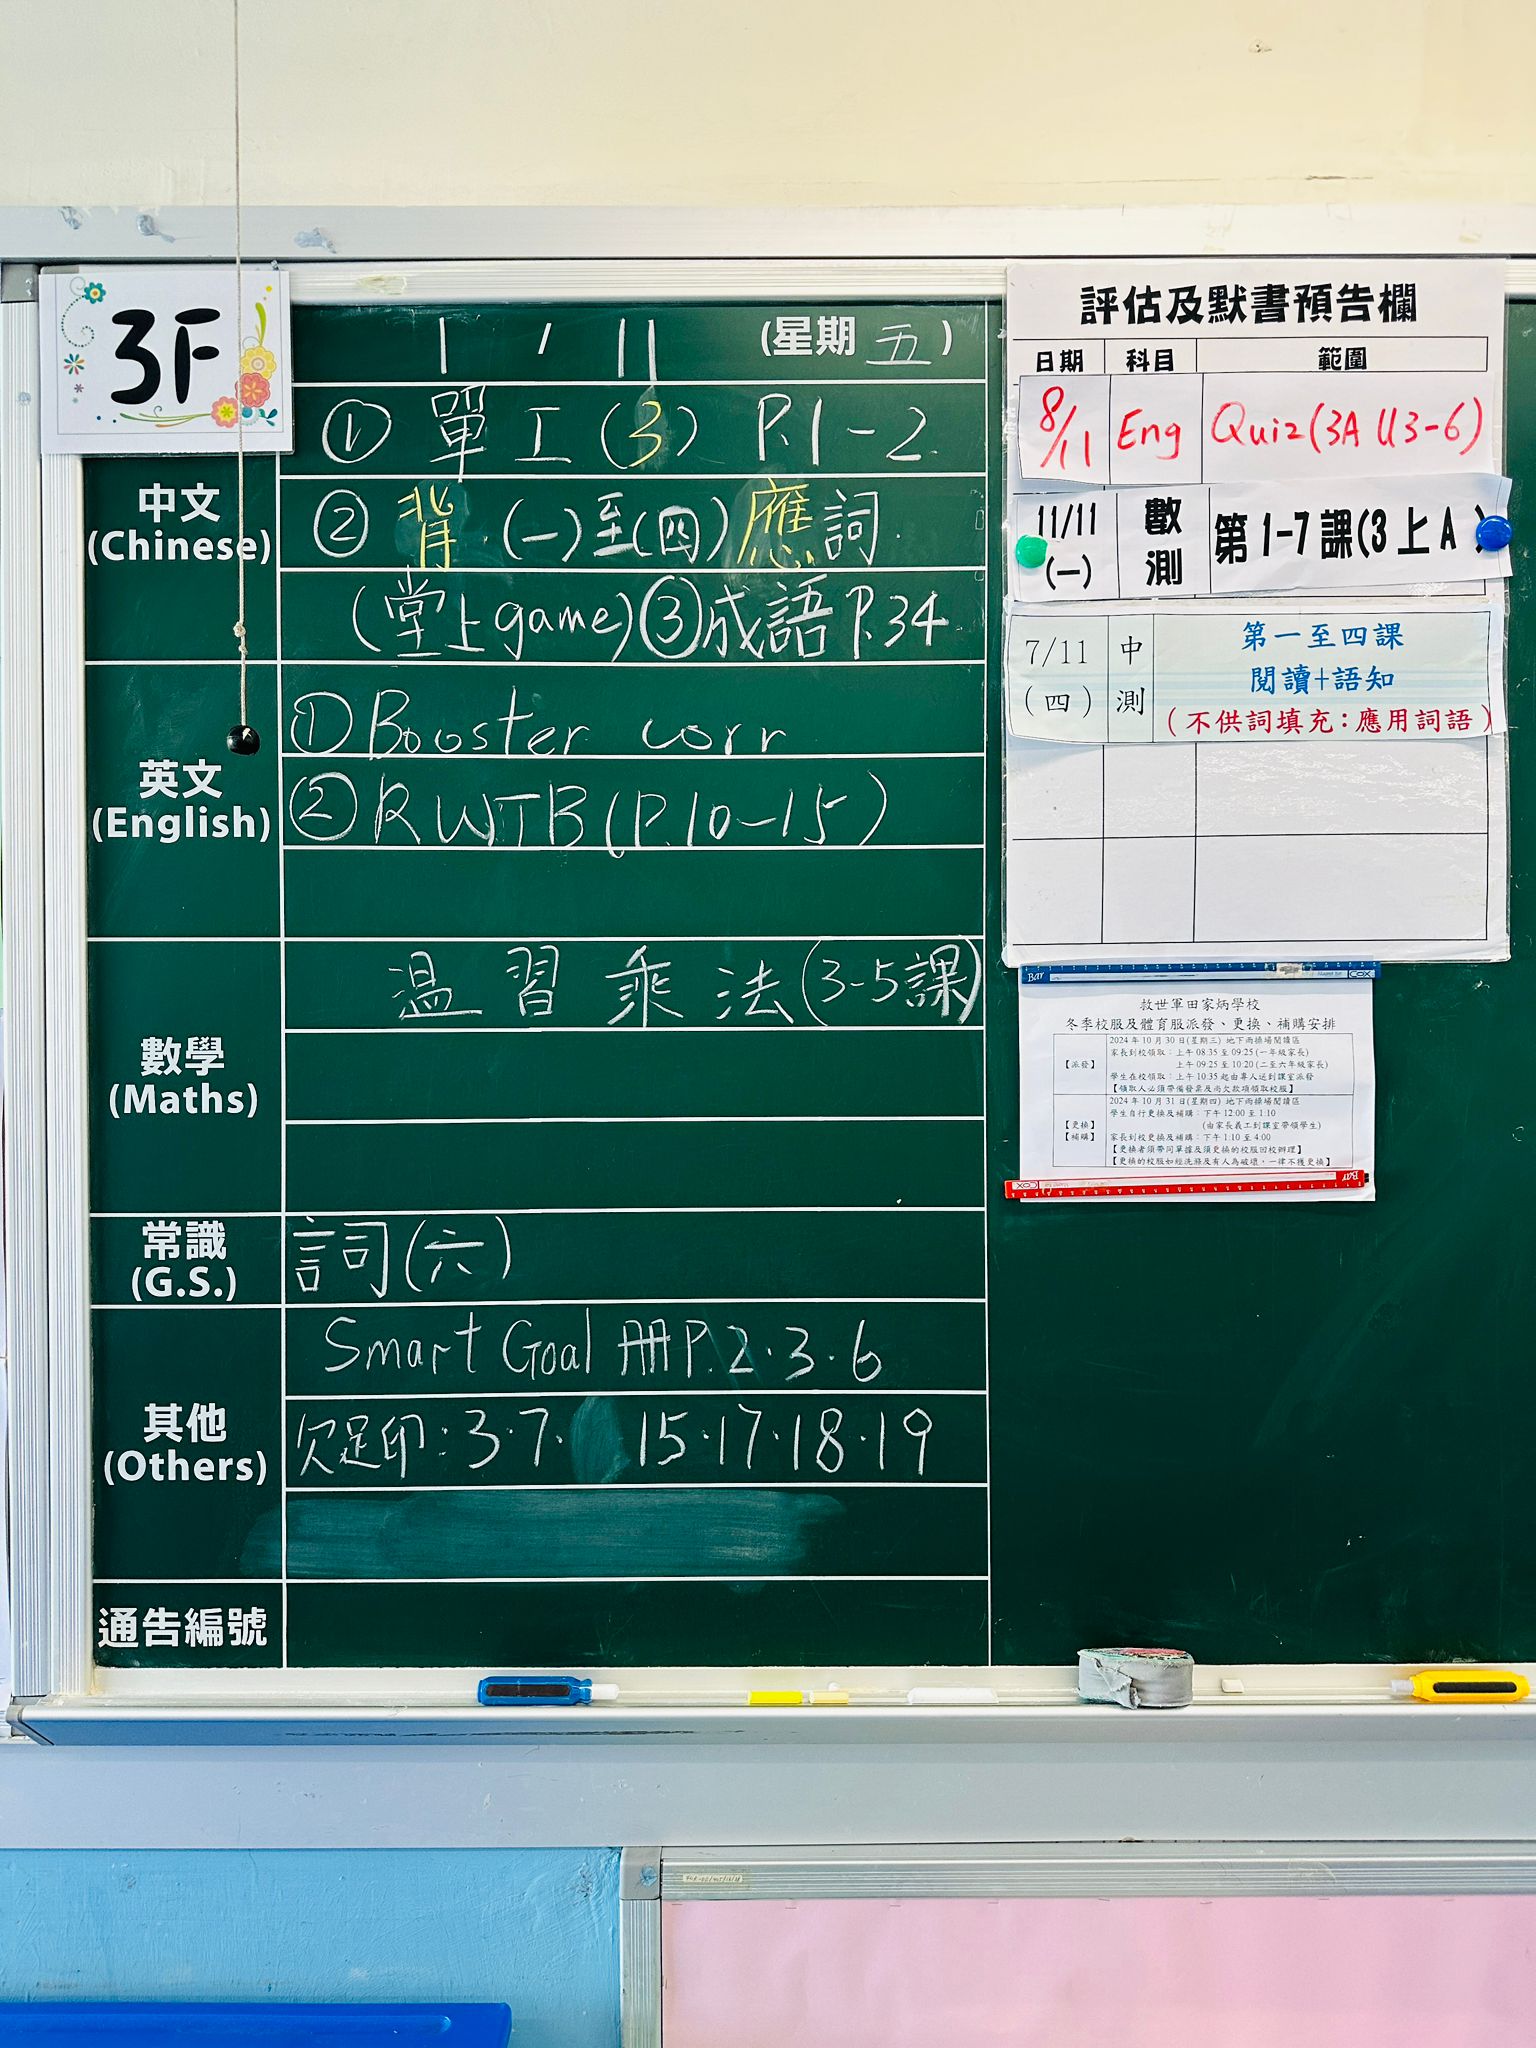 3F
1 / 11 (星期 五)
中文
(Chinese)
① 單工(3) P.1-2.
② 背.(一)至(四)應詞.
(堂上game)③成語P.34
英文
(English)
① Booster corr
② RWTB(P.10-15)
數學
(Maths)
溫習乘法(3-5課)
常識
(G.S.)
詞(六)
其他
(Others)
Smart Goal 冊P.2.3.6
欠足印:3.7. 15.17.18.19
通告編號
評估及默書預告欄
日期 科目 範圍
8/11 Eng Quiz(3A U3-6)
11/11
(一) 數測 第1-7課(3上A)
7/11
(四) 中測 第一至四課
閱讀+語知
(不供詞填充:應用詞語)
Bar COX
救世軍田家炳學校
冬季校服及體育服派發、更換、補購安排
【派發】
2024年10月30日(星期三) 地下雨操場閱讀區
家長到校領取:上午08:35至09:25(一年級家長)
上午09:25至10:20(二至六年級家長)
學生在校領取:上午10:35起由專人送到課室派發
【領取人必須帶備發票及尚欠款項領取校服】
【更換】
【補購】
2024年10月31日(星期四) 地下雨操場閱讀區
學生自行更換及補購:下午12:00至1:10
(由家長義工到課室帶領學生)
家長到校更換及補購:下午1:10至4:00
【更換者須帶同單據及須更換的校服回校辦理】
【更換的校服如經洗滌及有人為破壞,一律不獲更換】
COX Bar